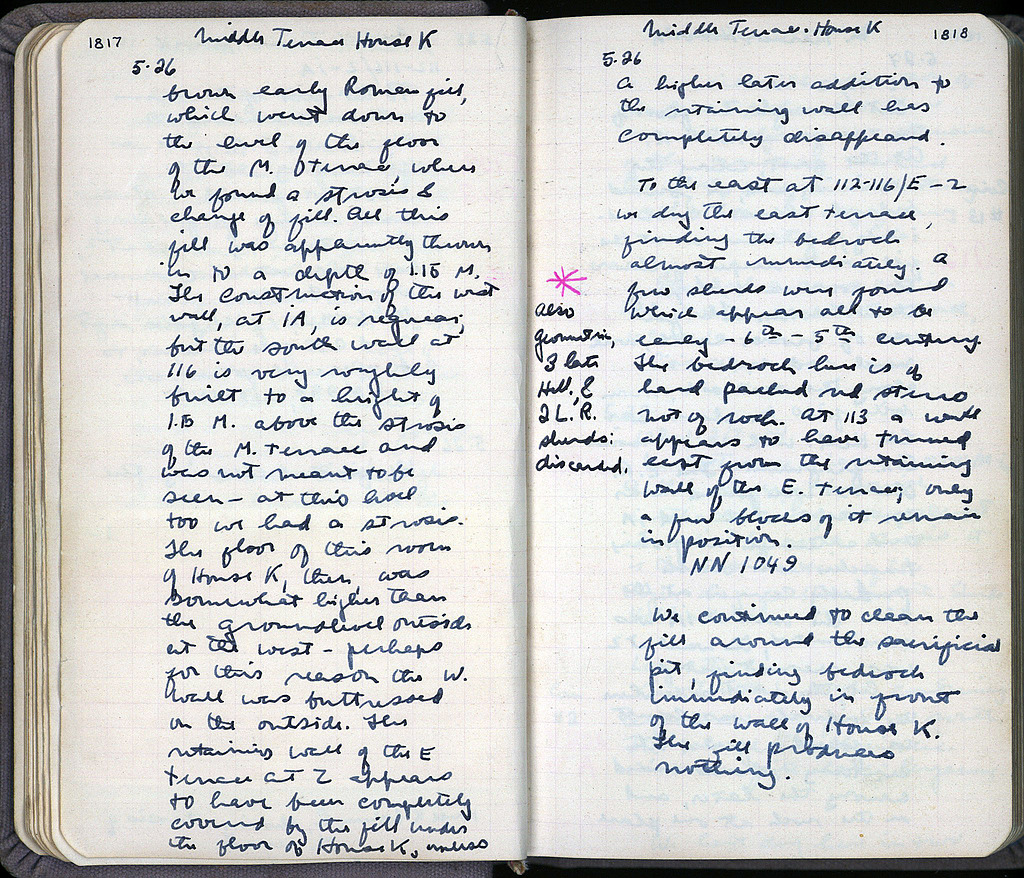 1817
Middle Terrace House K
5.26
brown early Roman fill,
which went down to
the level of the floor
of the M. Terrace, where
we found a strosis &
change of fill. All this
fill was apparently thrown
in to a depth of 1.15 M.
The construction of the west
wall, at IA, is regular,
but the south wall at
116 is very roughly
built to a height of
1.15 M. above the strosis
of the M. Terrace and
was not meant to be
seen – at this level
too we had a strosis.
The floor of this room
of House K, then, was
somewhat higher than
the groundlevel outside
at the west – perhaps
for this reason the W.
wall was buttressed
on the outside. The
retaining wall of the E
Terrace at Z appears
to have been completely
covered by the fill under
the floor of House K, unless
Middle Terrace. House K
1818
5.26
a higher later addition to
the retaining wall has
completely disappeared.
To the east at 112-116/E-2
we dug the east terrace,
finding the bedrock
almost immediately. A
few sherds were found
which appear all to be
early – 6th – 5th century.
The bedrock here is of
hard packed red stereo
not of rock. At 113 a wall
appears to have turned
east from the retaining
wall of the E. Terrace; only
a few blocks of it remain
in position.
NN 1049
Also
Geometric,
3 late
Hell. &
2 L.R.
sherds:
discarded.
We continued to clean the
fill around the sacrificial
pit, finding bedrock
immediately in front
of the wall of House K.
The fill produces
nothing.